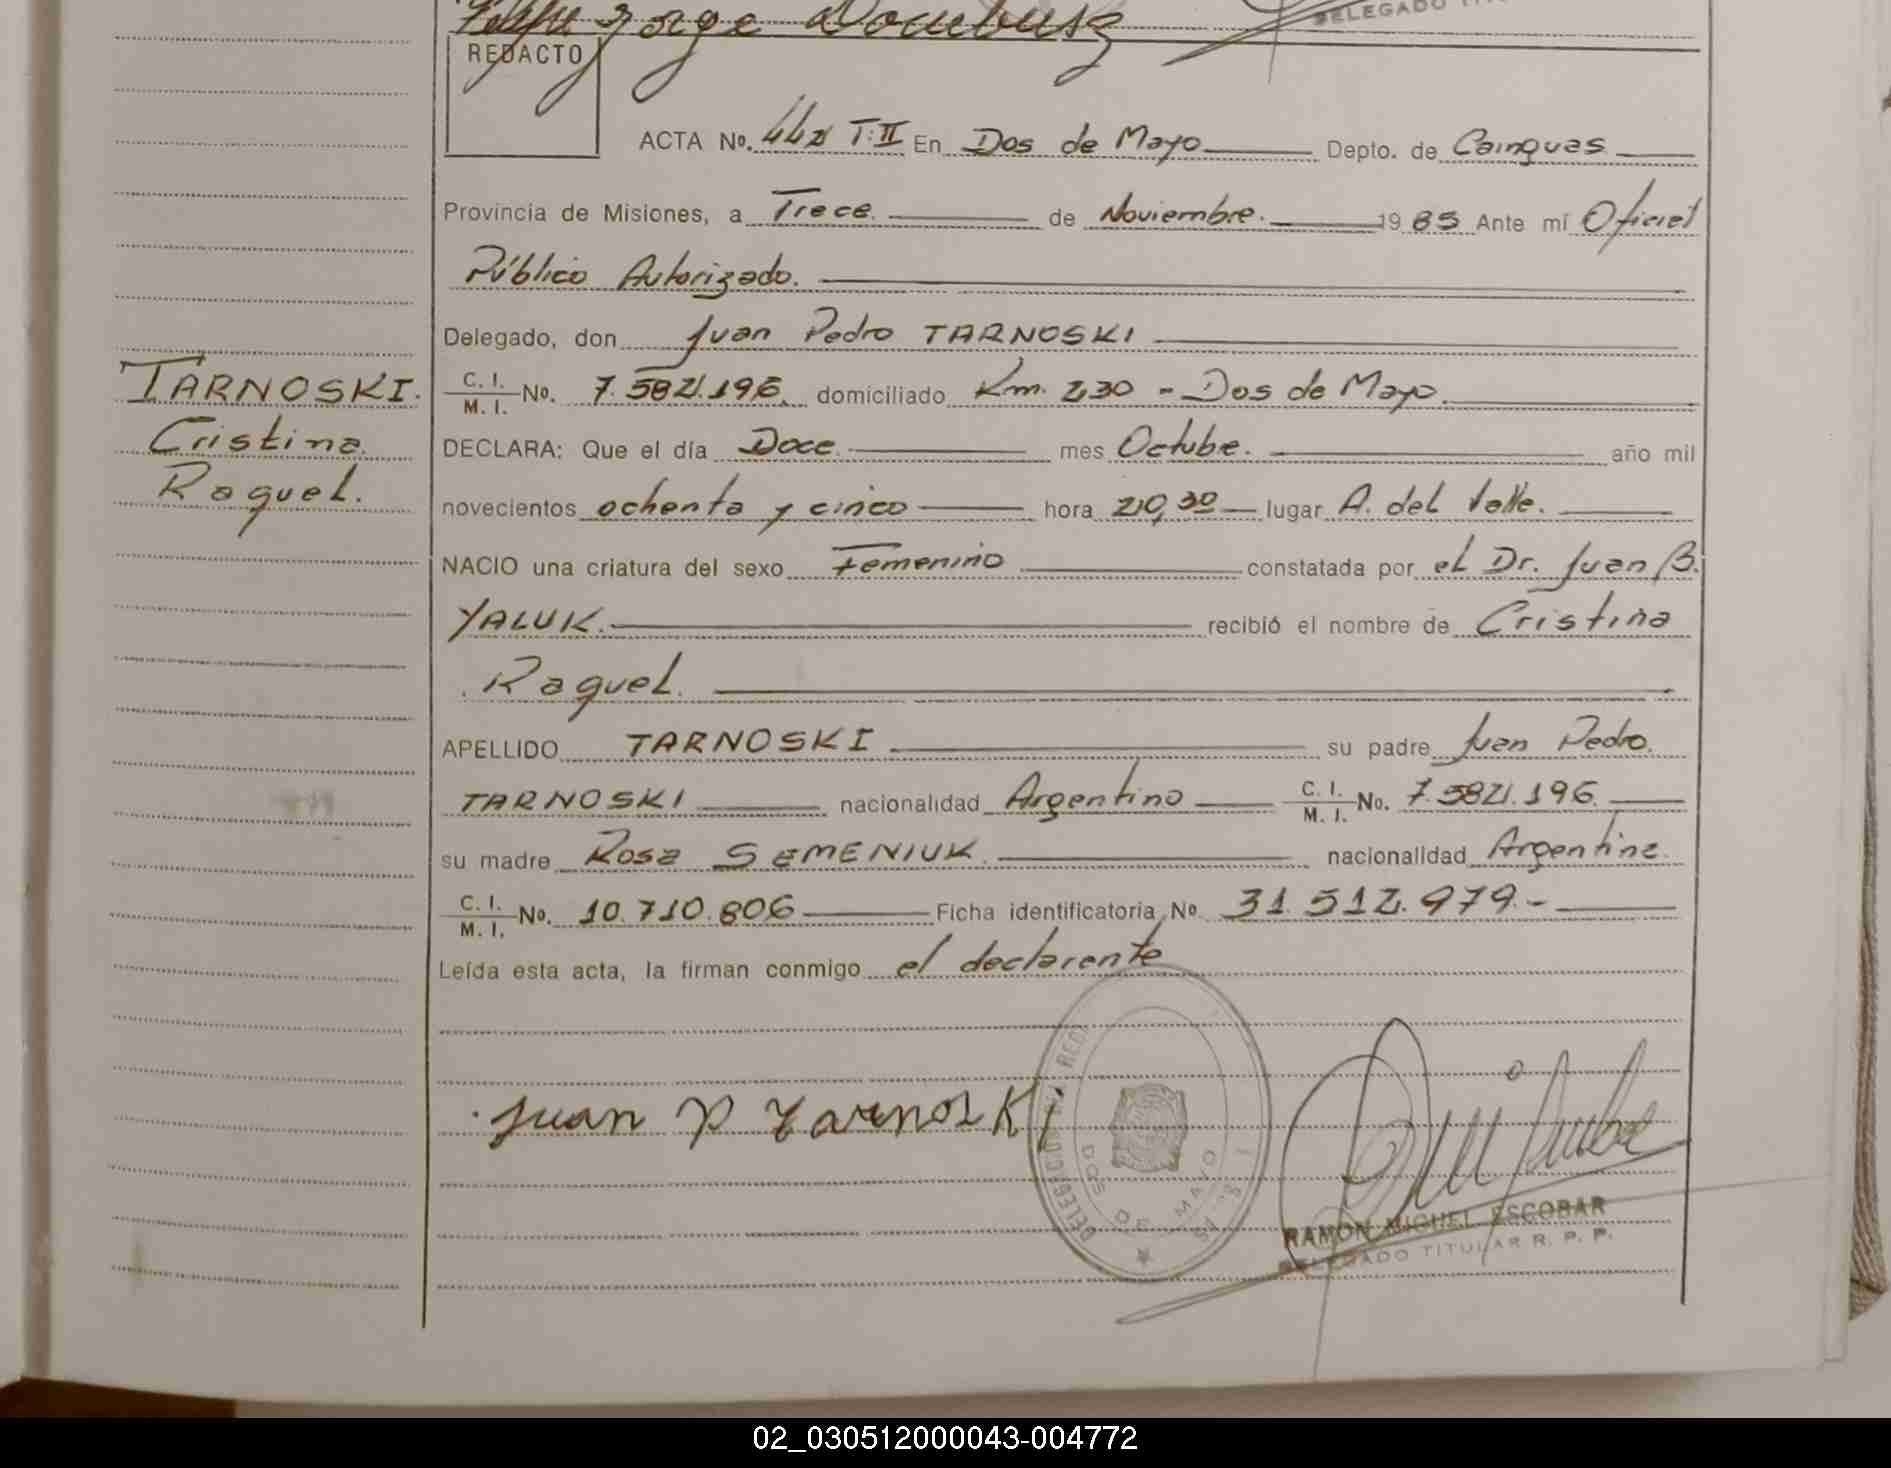 Jorge Dombusz
DELEGADO
REDACTO
ACTA No. 442 T:II En Dos de Mayo Depto. de Cainguas
Provincia de Misiones, a Trece. de Noviembre. 1985 Ante mí Oficial
Público Autorizado.
Delegado, don Juan Pedro TARNOSKI
TARNOSKI.
C. I.
M. I. No. 7.582.196. domiciliado Km. 230 - Dos de Mayo.
Cristina.
DECLARA: Que el día Doce. mes Octubre. año mil
Raquel.
novecientos ochenta y cinco hora 20,30 lugar A. del Valle.
NACIO una criatura del sexo Femenino constatada por el Dr. Juan B.
YALUK. recibió el nombre de Cristina
Raquel.
APELLIDO TARNOSKI su padre Juan Pedro.
TARNOSKI nacionalidad Argentino C. I.
M. I. No. 7.582.196.
su madre Rosa SEMENIUK. nacionalidad Argentina.
C. I.
M. I. No. 10.710.806 Ficha identificatoria No. 31.512.979.-
Leída esta acta, la firman conmigo el declarente
Juan P Tarnoski
DOS DE MAYO
RAMON MIGUEL ESCOBAR
DELEGADO TITULAR R. P. P.
02_030512000043-004772